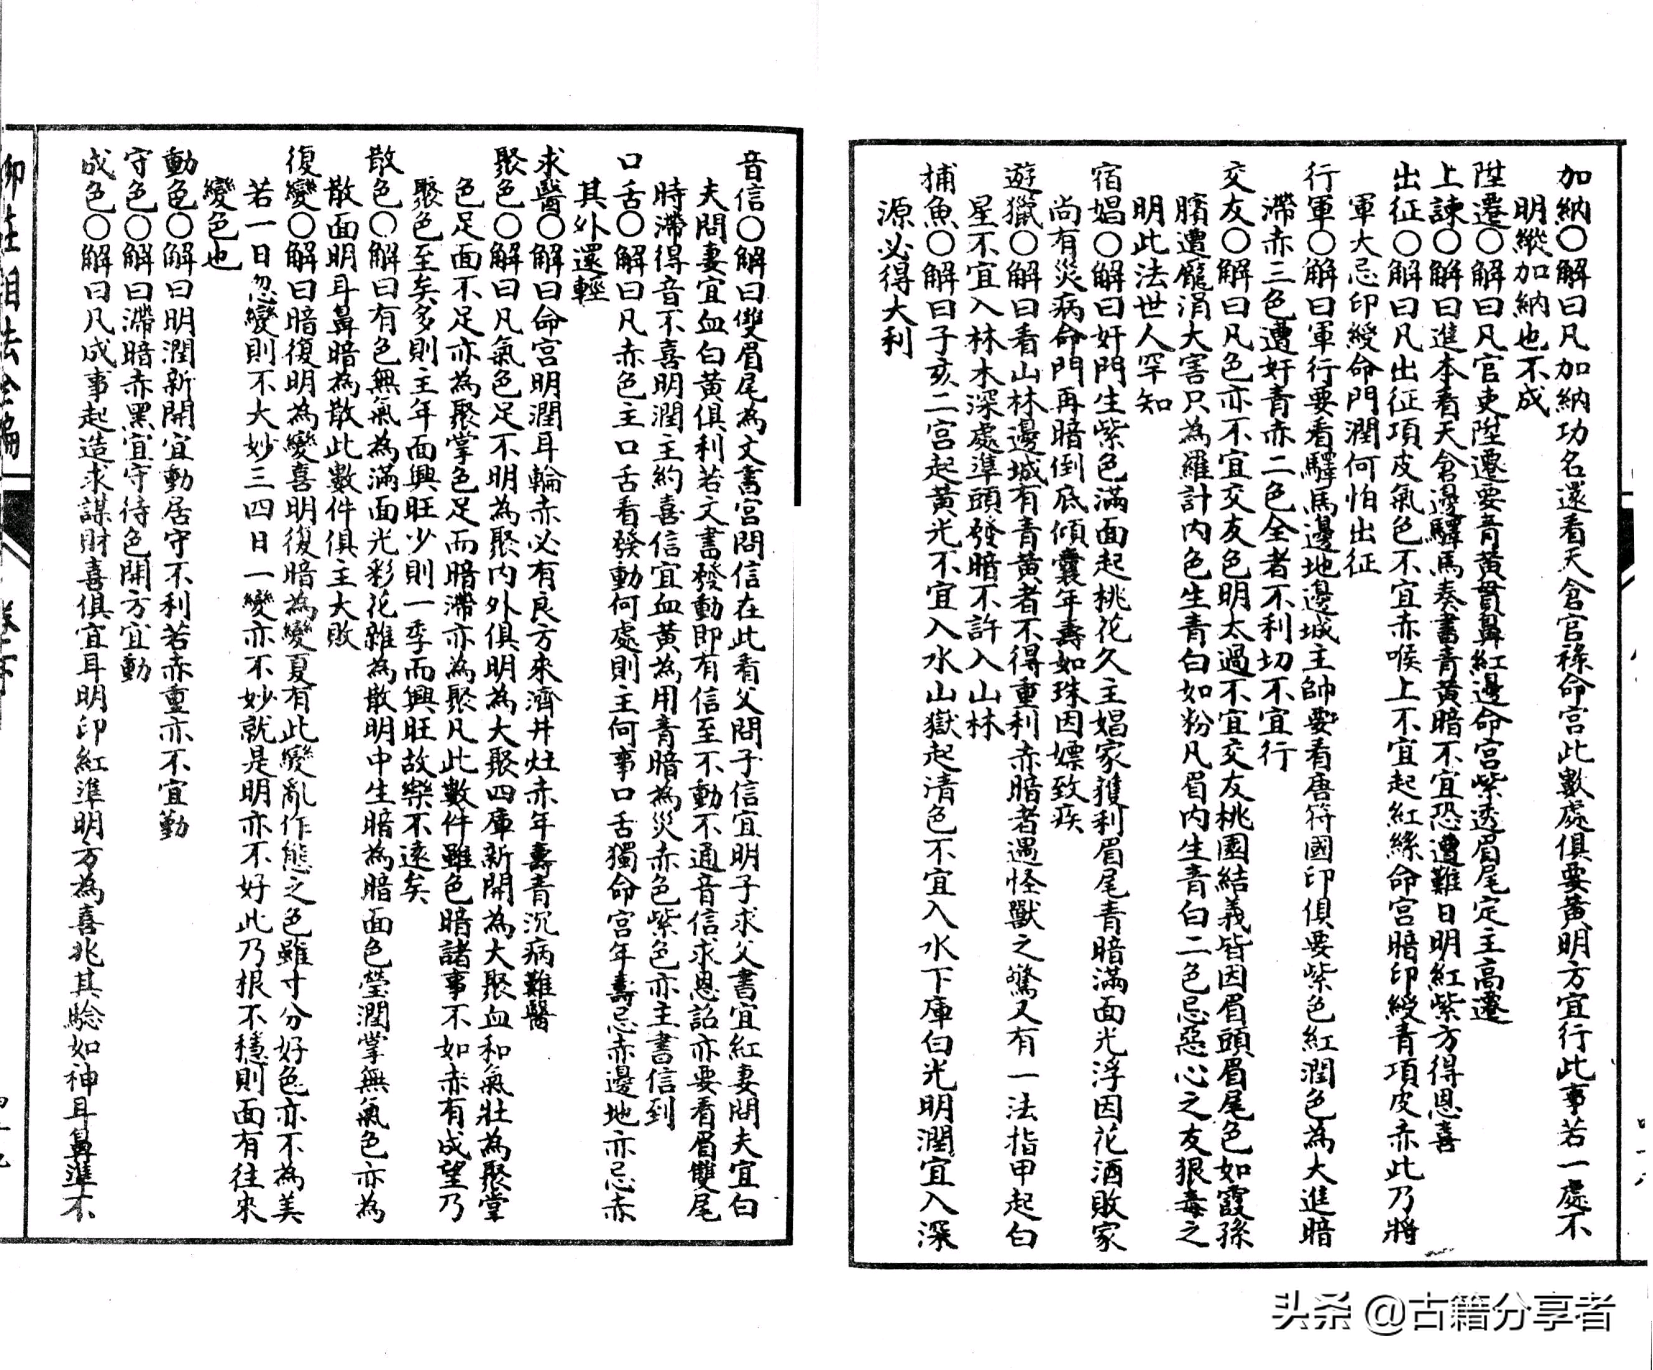 加納○解曰凡加納功名還看天倉官祿命宮此數處俱要黃明方宜行此事若一處不
明縱加納也不成
陞遷○解曰凡官吏陞遷要音黃貫鼻紅邊命宮紫透眉尾定主高遷
上諫○解曰進本看天倉邊驛馬奏書青黃暗不宜恐遭難日明紅紫方得恩喜
出征○解曰凡出征項皮氣色不宜赤喉上不宜起紅絲命宮暗印綬青項皮赤此乃將
軍大忌印綬命門潤何怕出征
行軍○解曰軍行要看驛馬邊地邊城主帥要看唐符國印俱要紫色紅潤色為大進暗
滯赤三色遭奸青赤二色全者不利切不宜行
交友○解曰凡色亦不宜交友色明太過不宜交友桃園結義皆因眉頭眉尾色如霞孫
臏遭龐涓大害只為羅計內色生青白如粉凡眉內生青白二色忌惡心之友狠毒之
明此法世人罕知
宿娼○解曰奸門生紫色滿面起桃花久主娼家獲利眉尾青暗滿面光浮因花酒敗家
尚有災病命門再暗倒底傾囊年壽如珠因嫖致疾
遊獵○解曰看山林邊城有青黃者不得重利赤暗者遇怪獸之驚又有一法指甲起白
星不宜入林木深處準頭發暗不許入山林
捕魚○解曰子亥二宮起黃光不宜入水山嶽起清色不宜入水下庫白光明潤宜入深
源必得大利
音信○解曰雙眉尾為文書宮問信在此看父問子信宜明子求父書宜紅妻問夫宜白
夫問妻宜血白黃俱利若文書發動即有信至不動不通音信求恩詔亦要看眉雙尾
時滯得音不喜明潤主約喜信宜血黃為用青暗為災赤色紫色亦主書信到
口舌○解曰凡赤色主口舌看發動何處則主何事口舌獨命宮年壽忌赤邊地亦忌赤
其外還輕
求醫○解曰命宮明潤耳輪赤必有良方來濟井灶赤年壽青沉病難醫
聚色○解曰凡氣色足不明為聚內外俱明為大聚四庫新開為大聚血和氣壯為聚堂
色足面不足亦為聚掌色足而暗滯亦為聚凡此數件雖色暗諸事不如赤有成望乃
聚色至矣多則主年面興旺少則一季而興旺故樂不遠矣
散色○解曰有色無氣為滿面光彩花雜為散明中生暗為暗面色瑩潤掌無氣色亦為
散面明耳鼻暗為散此數件俱主大敗
復變○解曰暗復明為變喜明復暗為變夏有此變亂作態之色雖寸分好色亦不為美
若一日忽變則不大妙三四日一變亦不妙就是明亦不好此乃根不穩則面有往來
變色也
動色○解曰明潤新開宜動居守不利若赤重亦不宜勤
守色○解曰滯暗赤黑宜守待色開方宜動
成色○解曰凡成事起造求謀財喜俱宜耳明印紅準明方為喜兆其驗如神耳鼻準不
柳庄相法全編
頭條 @古籍分享者